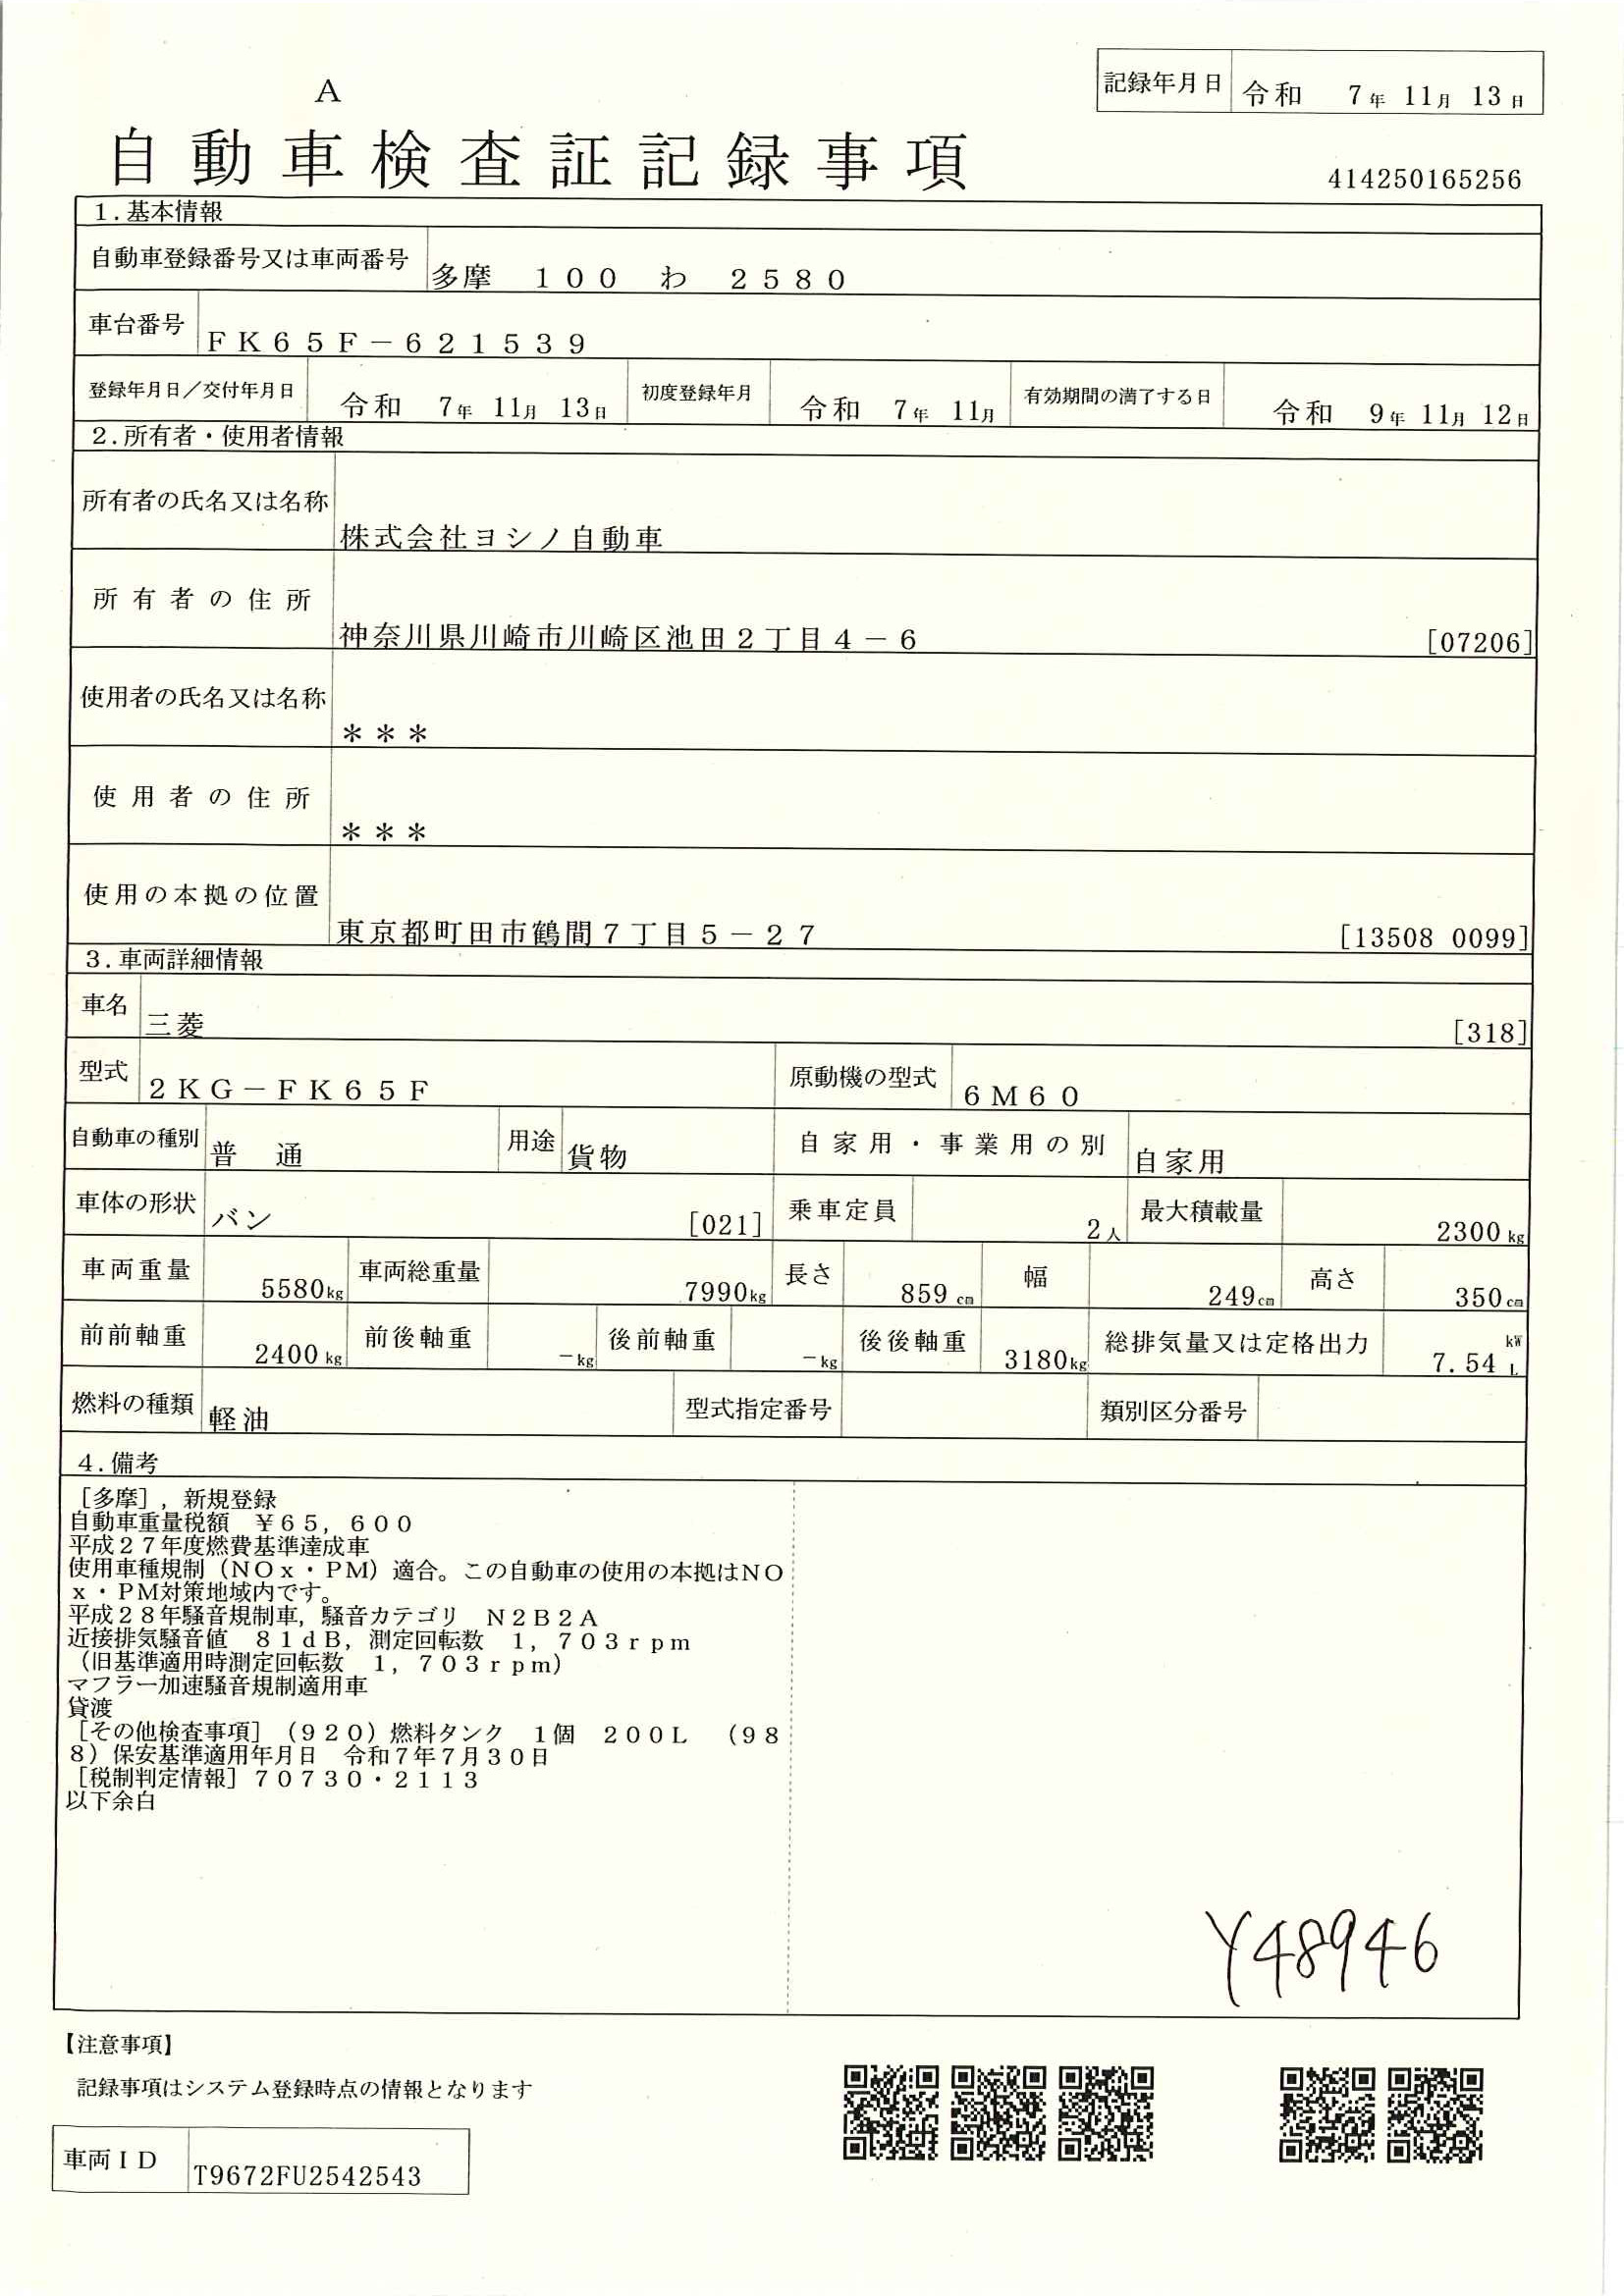 A
記録年月日 令和 7年 11月 13日
自動車検査証記録事項
414250165256
1.基本情報
自動車登録番号又は車両番号 多摩 100 わ 2580
車台番号 FK65F-621539
登録年月日/交付年月日 令和 7年 11月 13日 初度登録年月 令和 7年 11月 有効期間の満了する日 令和 9年 11月 12日
2.所有者・使用者情報
所有者の氏名又は名称 株式会社ヨシノ自動車
所有者の住所 神奈川県川崎市川崎区池田2丁目4-6 [07206]
使用者の氏名又は名称 ***
使用者の住所 ***
使用の本拠の位置 東京都町田市鶴間7丁目5-27 [13508 0099]
3.車両詳細情報
車名 三菱 [318]
型式 2KG-FK65F 原動機の型式 6M60
自動車の種別 普通 用途 貨物 自家用・事業用の別 自家用
車体の形状 バン [021] 乗車定員 2人 最大積載量 2300kg
車両重量 5580kg 車両総重量 7990kg 長さ 859cm 幅 249cm 高さ 350cm
前前軸重 2400kg 前後軸重 -kg 後前軸重 -kg 後後軸重 3180kg 総排気量又は定格出力 7.54 kW L
燃料の種類 軽油 型式指定番号 類別区分番号
4.備考
[多摩],新規登録
自動車重量税額 ¥65,600
平成27年度燃費基準達成車
使用車種規制(NOx・PM)適合。この自動車の使用の本拠はNO
x・PM対策地域内です。
平成28年騒音規制車,騒音カテゴリ N2B2A
近接排気騒音値 81dB,測定回転数 1,703rpm
(旧基準適用時測定回転数 1,703rpm)
マフラー加速騒音規制適用車
貸渡
[その他検査事項](920)燃料タンク 1個 200L (98
8)保安基準適用年月日 令和7年7月30日
[税制判定情報]70730・2113
以下余白
Y48946
【注意事項】
記録事項はシステム登録時点の情報となります
車両ID T9672FU2542543